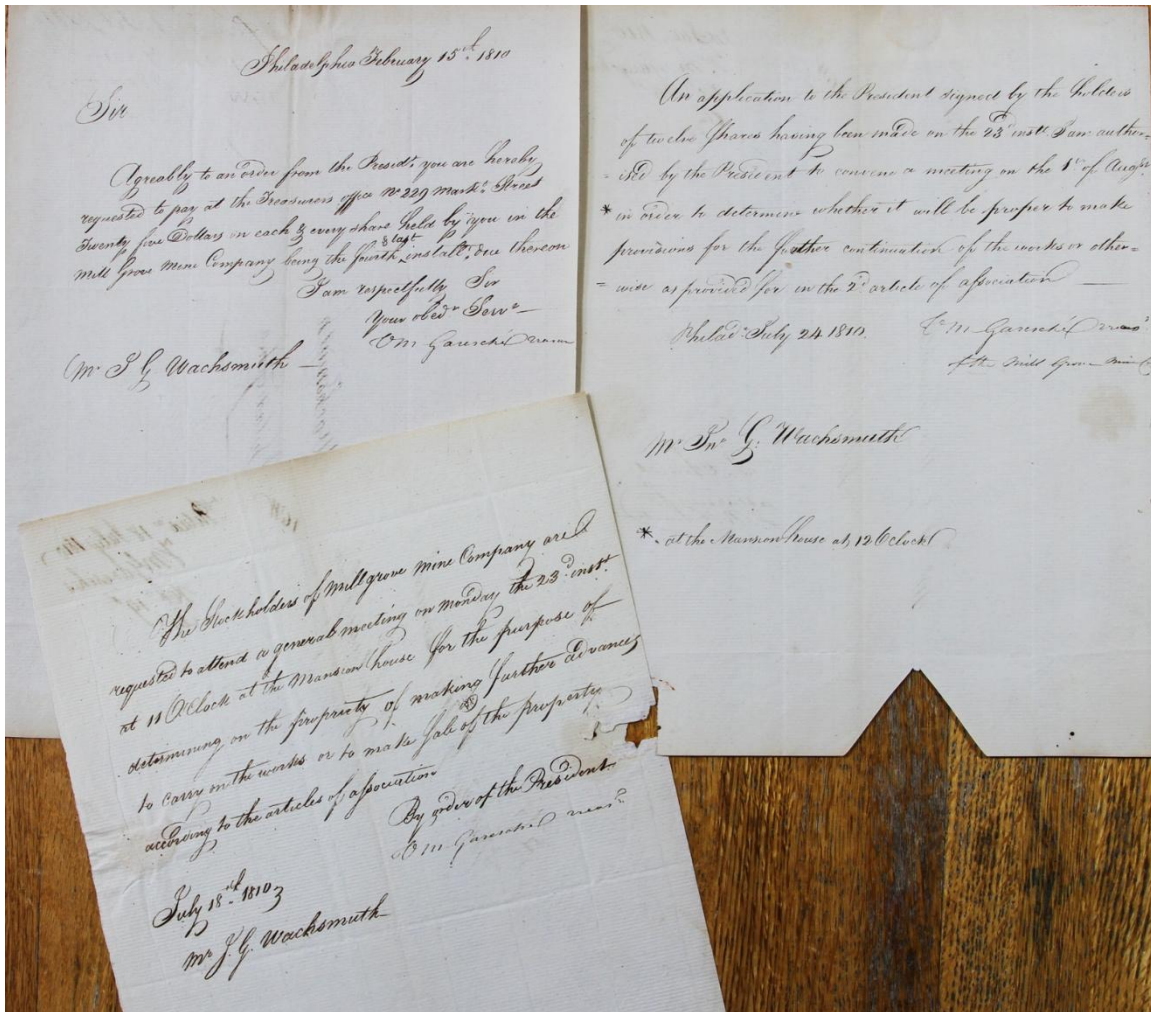 Philadelphia February 15th. 1810
Sir
Agreably to an order from the Presidt. you are hereby
requested to pay at the Treasurers office No 229 Markt. Street
Twenty five Dollars on each & every share held by you in the
Mill Grove Mine Company being the fourth & last install.t due thereon
I am respectfully Sir
Your obedt. Servt.
V M Garesché
Mr J G Wachsmuth
An application to the President signed by the holders
of twelve Shares having been made on the 23d instt. I am author=
=ised by the President to convene a meeting on the 1st of Augt.
* in order to determine whether it will be proper to make
provisions for the further continuation of the works or other=
=wise as provided for in the 2d article of association
Philada. July 24 1810.
V M Garesché
of the Mill Grove Mine Co
Mr Jno G. Wachsmuth
* at the Mansion house at 12 OClock
The Stockholders of Millgrove Mine Company are
requested to attend a general meeting on Monday the 23d instt.
at 11 OClock at the Mansion house for the purpose of
determining on the propriety of making further advances
to carry on the works or to make Sale of the property
according to the articles of association
By order of the President
V M Garesché
July 18th. 1810
Mr J. G. Wachsmuth